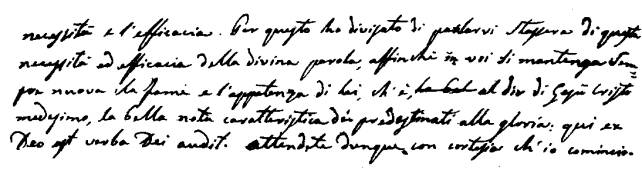 necessità e l'efficacia. Per questo ho divisato di parlarvi stassera di questa
necessità ed efficacia della divina parola, affinchè in voi si mantenga sem=
pre nuova la fame e l'appetenza di lei, ch'è, al dir di Gesù Cristo
medesimo, la bella nota caratteristica dei predestinati alla gloria: qui ex
Deo est verba Dei audit. Attendete dunque con cortesia ch'io comincio.